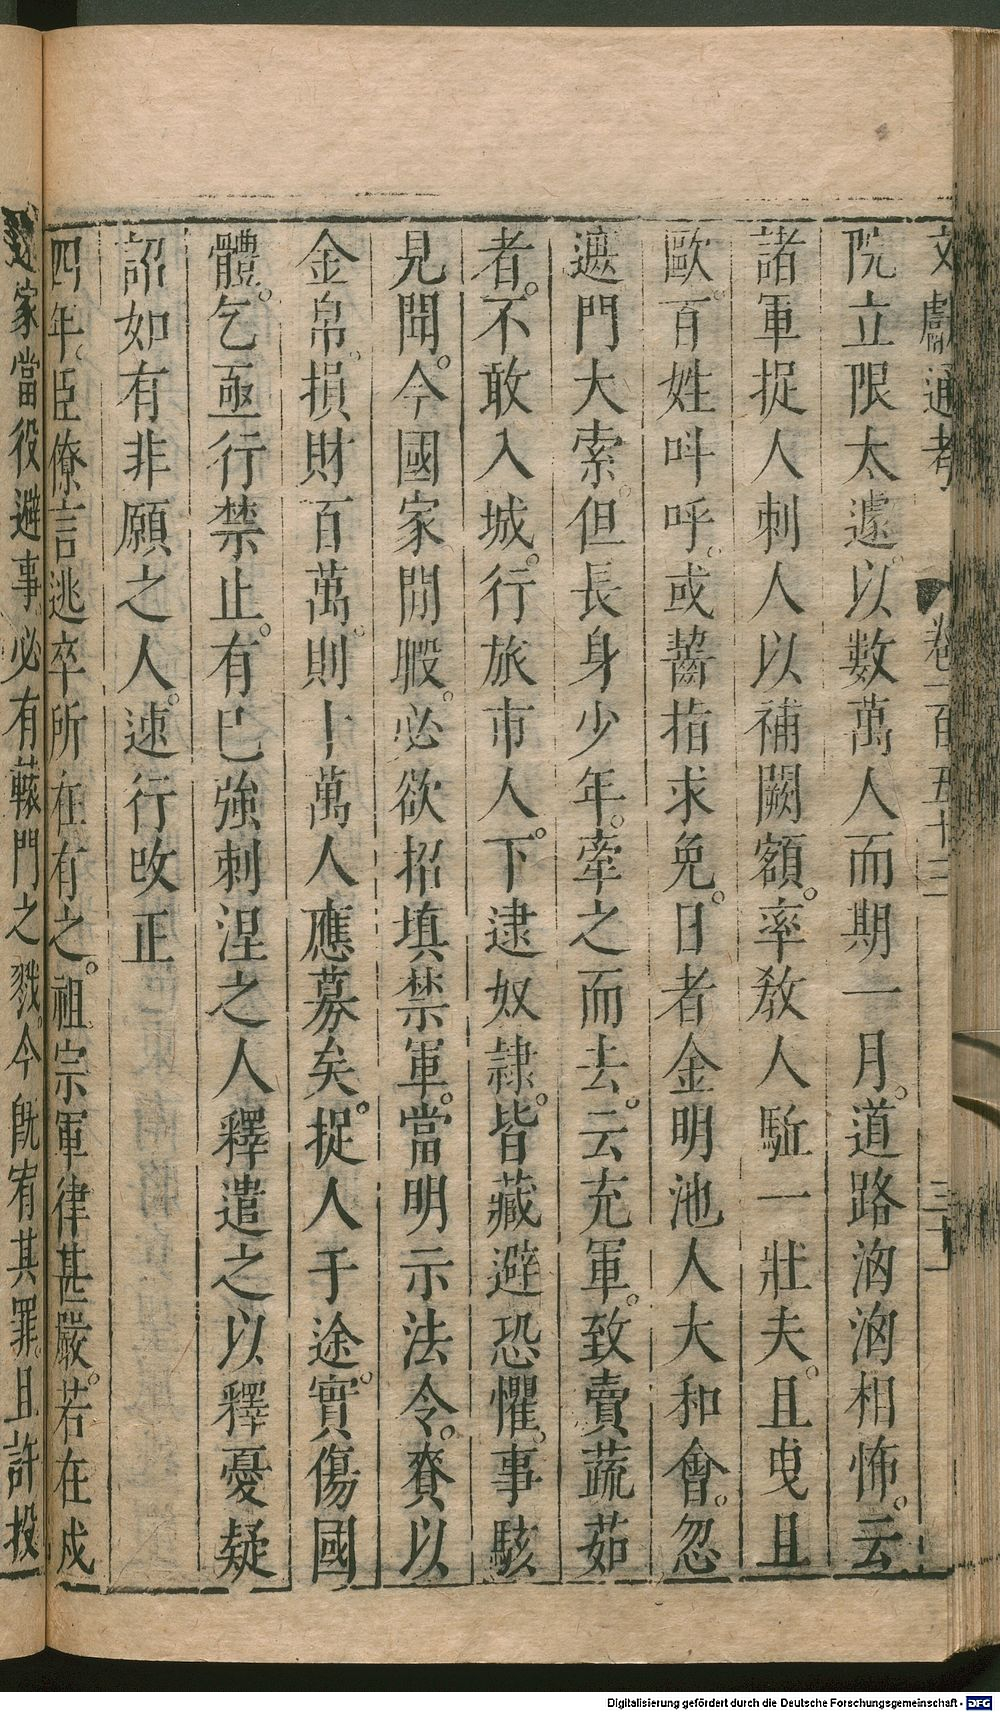 文獻通考 卷一百五十三 三十
院立限太遽。以數萬人而期一月。道路洶洶相怖。云
諸軍捉人刺人以補闕額。率敎人駈一壯夫。且曳且
歐。百姓呌呼。或齧指求免。日者金明池人大和會。忽
遮門大索。但長身少年。牽之而去。云充軍。致賣蔬茹
者。不敢入城。行旅市人。下逮奴隷。皆藏避恐懼。事駭
見聞。今國家閒暇。必欲招填禁軍。當明示法令。賚以
金帛。損財百萬。則十萬人應募矣。捉人于途。實傷國
體。乞亟行禁止。有已強刺涅之人釋遣之以釋憂疑
詔如有非願之人。速行改正
四年。臣僚言逃卒所在有之。祖宗軍律甚嚴。若在戍
家當役避事必有轅門之戮。今旣宥其罪。且許投
Digitalisierung gefördert durch die Deutsche Forschungsgemeinschaft - DFG